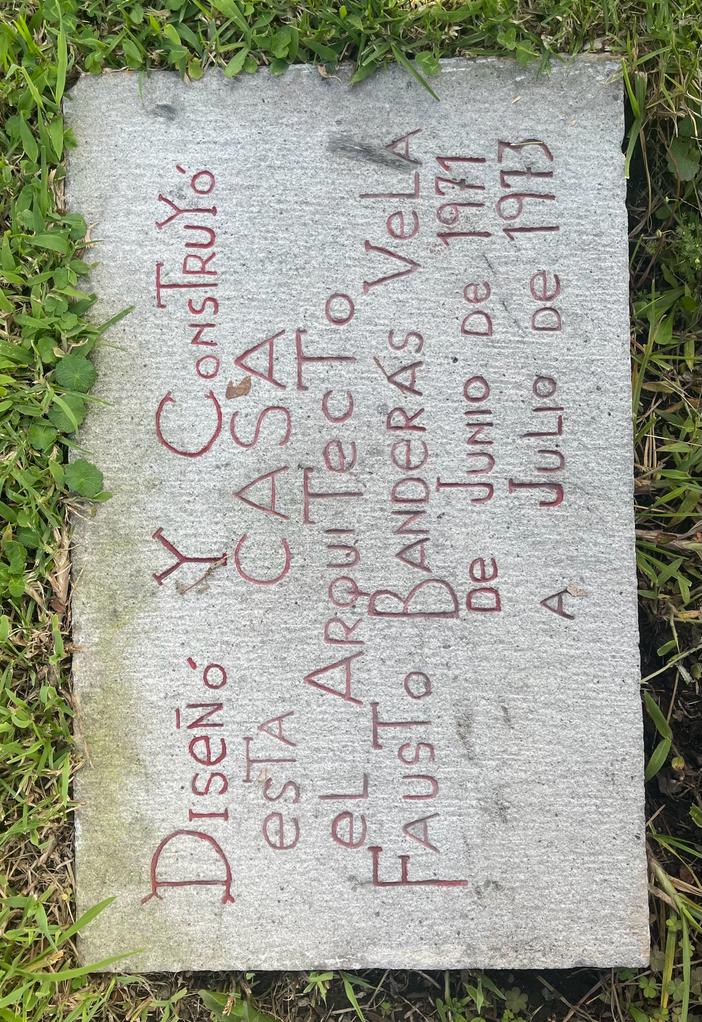 Diseñó Y Construyó
esta CASA
el Arquitecto
Fausto Banderas Vela
De Junio De 1971
A Julio De 1973